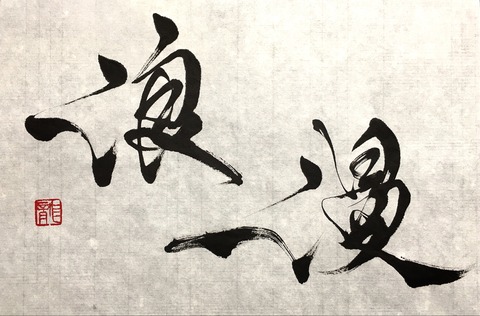 浪漫
龍